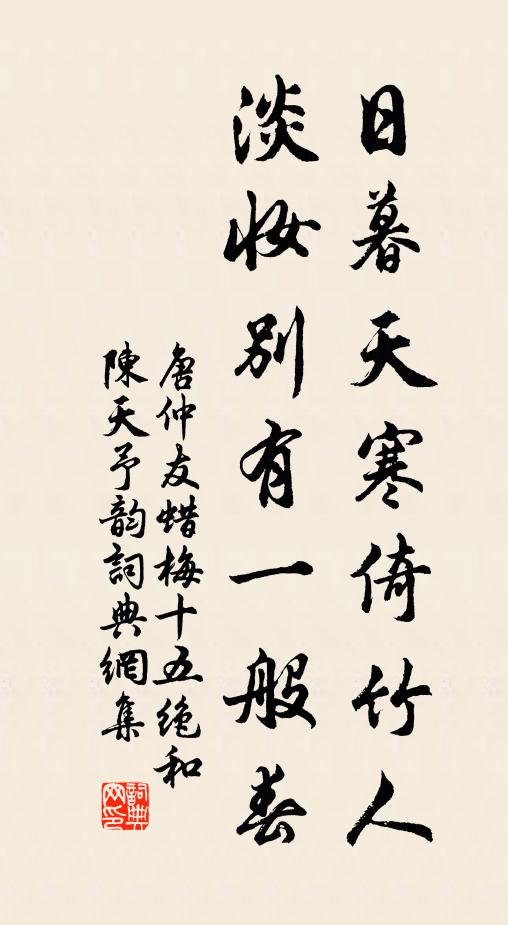 日暮天寒倚竹人
淡妝別有一般春
唐仲友蜡梅十五絶和
陳天予韵詞典網集
詞典
网印